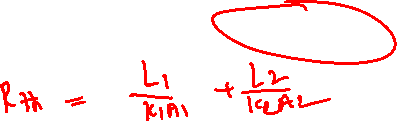 R_th = L1/K1A1 + L2/K2A2